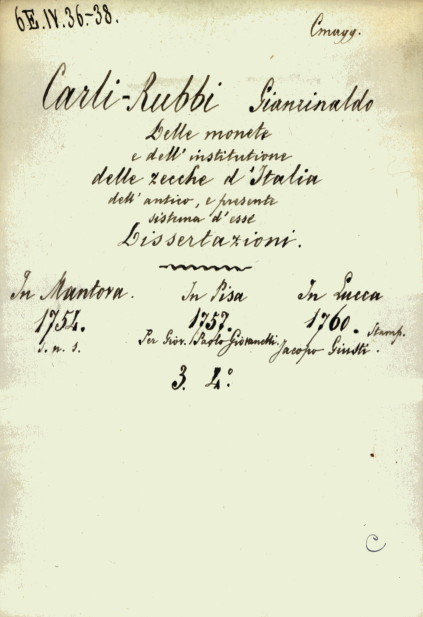 6E.IV.36.-38.
Cmagg.
Carli-Rubbi Gianrinaldo
Delle monete
e dell' institutione
delle zecche d'Italia
dell' antico, e presente
sistema d'esse
Dissertazioni.
In Mantova. In Pisa In Lucca
1754. 1757. 1760.
s. n. s. Per Giov. Paolo Giovanelli. Stamp.
Jacopo Giusti.
3. 4°.
C